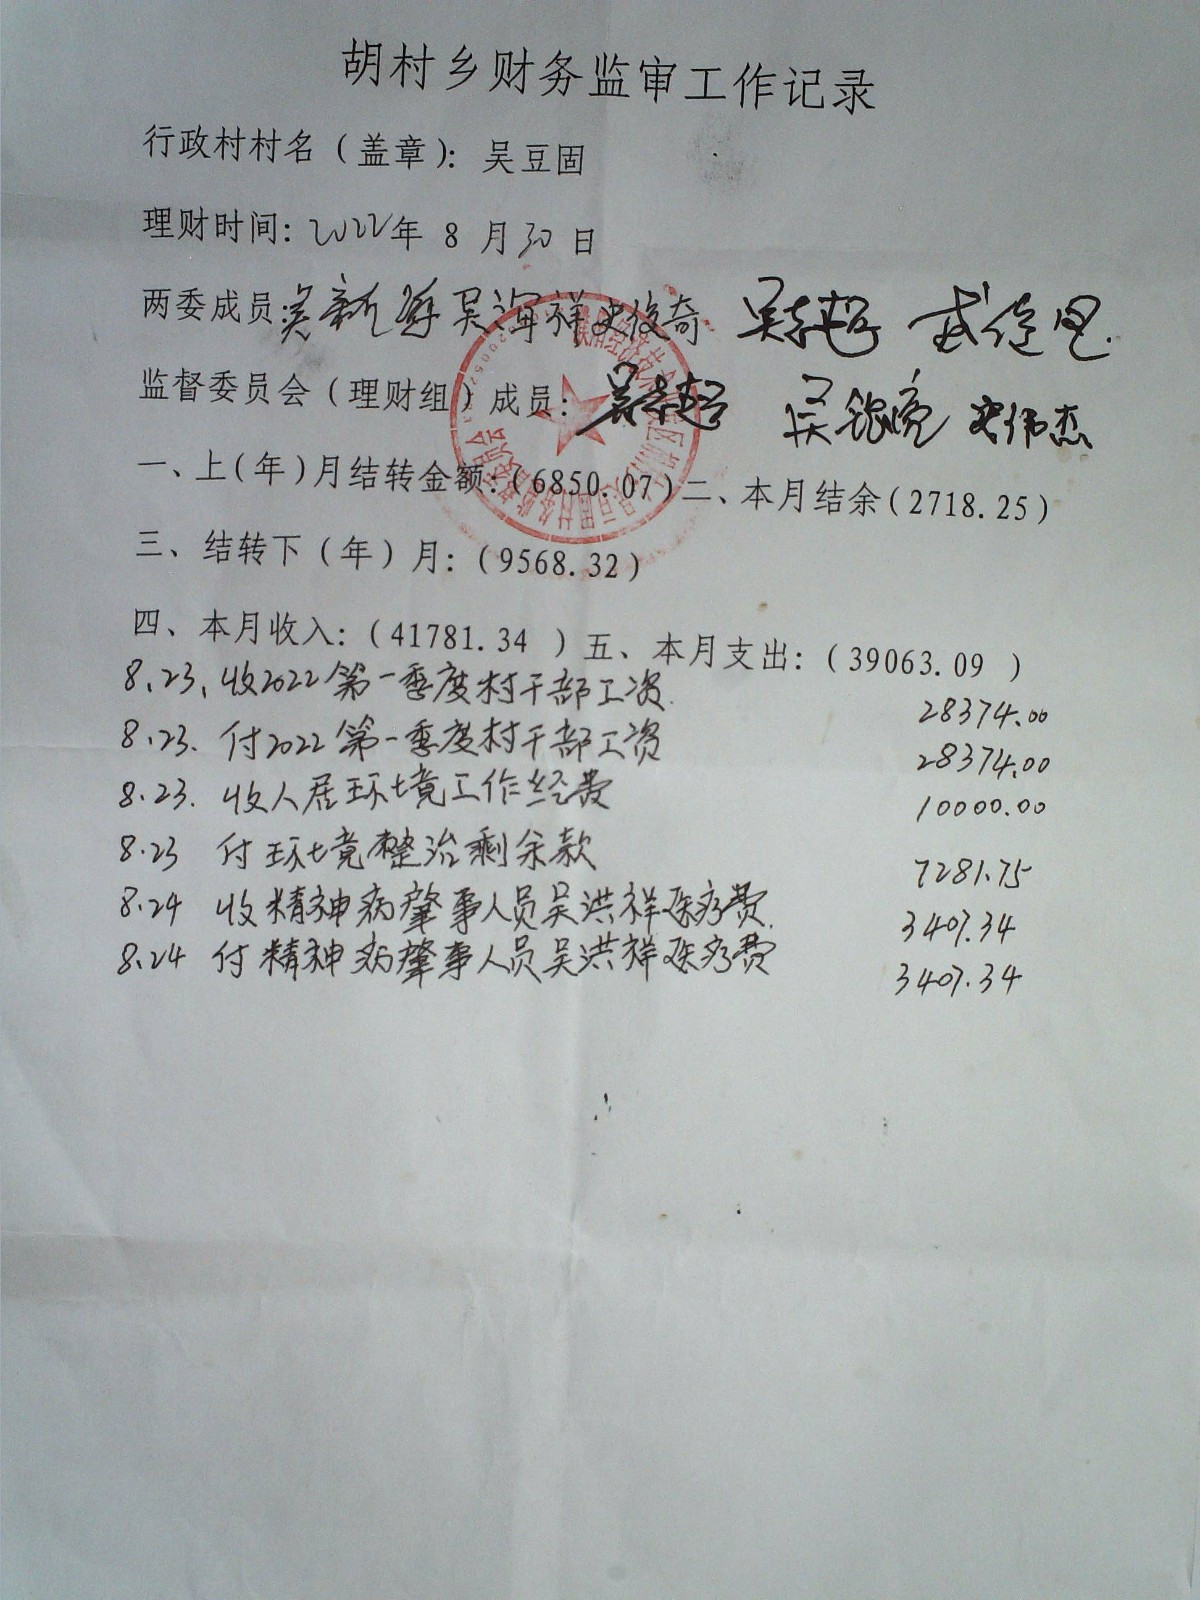 胡村乡财务监审工作记录
行政村村名（盖章）：吴豆固
理财时间：2022年 8 月30日
两委成员：吴新 吴海祥 史俊奇 吴志超
监督委员会（理财组）成员：吴志超 吴银亮 史伟杰
一、上（年）月结转金额：（6850.07）二、本月结余（2718.25）
三、结转下（年）月：（9568.32）
四、本月收入：（41781.34 ）五、本月支出：（39063.09 ）
8.23.收2022第一季度村干部工资 28374.00
8.23. 付2022第一季度村干部工资 28374.00
8.23. 收人居环境工作经费 10000.00
8.23 付环境整治剩余款 7281.75
8.24 收精神病肇事人员吴洪祥医疗费. 3407.34
8.24 付精神病肇事人员吴洪祥医疗费 3407.34